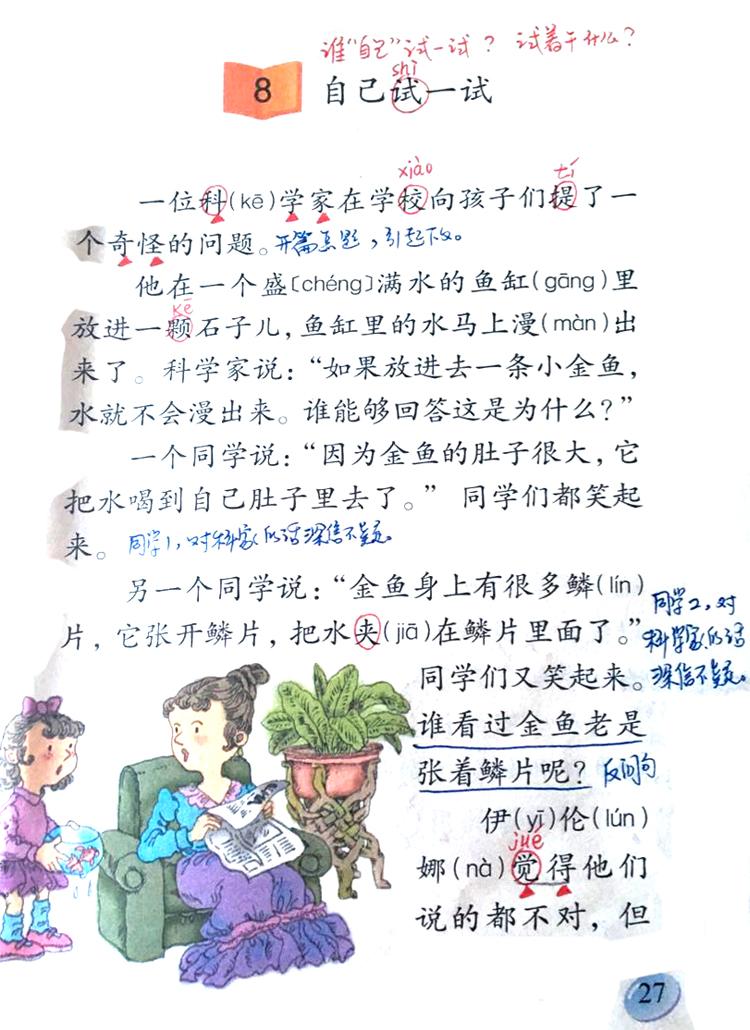 谁“自己”试一试？ 试着干什么？
shì
8 自己试一试
xiào tí
一位科(kē)学家在学校向孩子们提了一
个奇怪的问题。开篇点题，引起下文。
他在一个盛〔chéng〕满水的鱼缸(gāng)里
kē
放进一颗石子儿，鱼缸里的水马上漫(màn)出
来了。科学家说：“如果放进去一条小金鱼，
水就不会漫出来。谁能够回答这是为什么？”
一个同学说：“因为金鱼的肚子很大，它
把水喝到自己肚子里去了。” 同学们都笑起
来。 同学1，对科学家的话深信不疑。
另一个同学说：“金鱼身上有很多鳞(lín)
片，它张开鳞片，把水夹(jiā)在鳞片里面了。”
同学2，对
科学家的话
深信不疑。
同学们又笑起来。
谁看过金鱼老是
张着鳞片呢？ 反问句
伊(yī)伦(lún)
jué
娜(nà)觉得他们
说的都不对，但
27